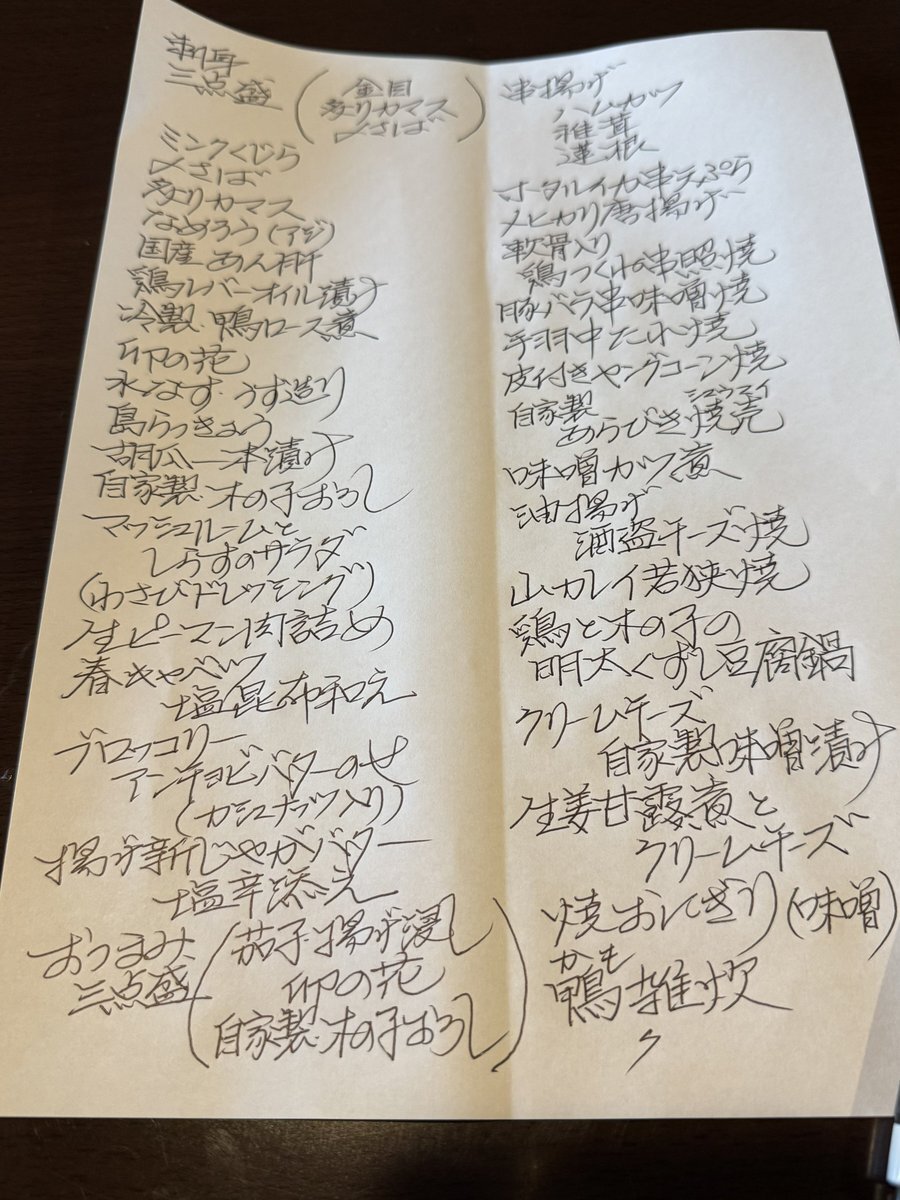 刺身
三点盛
(金目
炙りカマス
〆さば)
ミンクくじら
〆さば
炙りカマス
なめろう(アジ)
国産あん肝
鶏レバーオイル漬け
冷製.鴨ロース煮
卯の花
水なす.うす造り
島らっきょう
胡瓜一本漬け
自家製.木の子おろし
マッシュルームと
しらすのサラダ
(わさびドレッシング)
生ピーマン肉詰め
春キャベツ
塩昆布和え
ブロッコリー
アンチョビバターのせ
(カシュナッツ入り)
揚げ新じゃがバター
塩辛添え
おつまみ
三点盛
(茄子揚げ浸し
卯の花
自家製.木の子おろし)
串揚げ
ハムカツ
椎茸
蓮根
ホタルイカ串天ぷら
メヒカリ唐揚げ
軟骨入り
鶏つくねの串照焼
豚バラ串味噌焼
手羽中たれ焼
皮付きヤングコーン焼
自家製
あらびき焼売
シュウマイ
味噌カツ煮
油揚げ
酒盗チーズ焼
山カレイ若狭焼
鶏と木の子の
明太くずし豆腐鍋
クリームチーズ
自家製味噌漬け
生姜甘露煮と
クリームチーズ
焼おにぎり(味噌)
かも
鴨雑炊